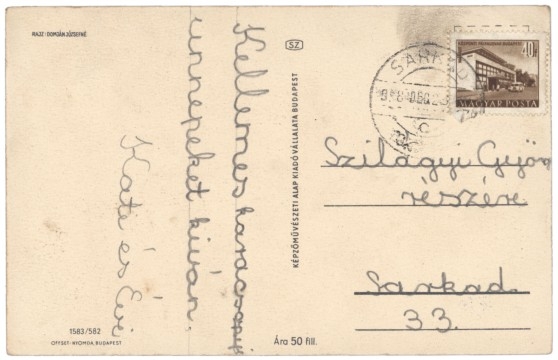 RAJZ: DOMJÁN JÓZSEFNÉ
Kellemes karácsonyi
ünnepeket kiván.
Kató és Évi
1583/582
OFFSET-NYOMDA, BUDAPEST
SZ.
KÉPZŐMŰVÉSZETI ALAP KIADÓ VÁLLALATA BUDAPEST
Ára 50 fill.
SARKAD
40 f
MAGYAR POSTA
Szilágyi Györ
részére
Sarkad.
33.